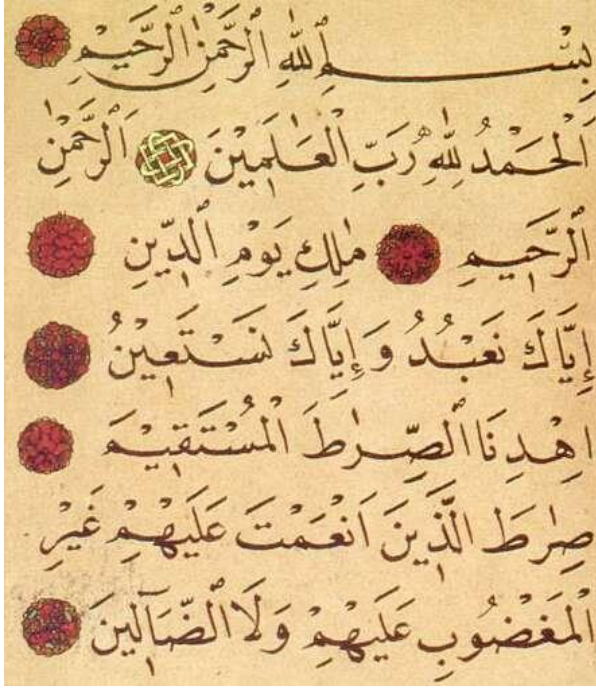 بِسْمِ اللّٰهِ الرَّحْمٰنِ الرَّحِيْمِ
اَلْحَمْدُ لِلّٰهِ رَبِّ الْعٰلَمِيْنَ الرَّحْمٰنِ
الرَّحِيْمِ مٰلِكِ يَوْمِ الدِّيْنِ
إِيَّاكَ نَعْبُدُ وَإِيَّاكَ نَسْتَعِيْنُ
اِهْدِنَا الصِّرٰطَ الْمُسْتَقِيْمَ
صِرٰطَ الَّذِيْنَ اَنْعَمْتَ عَلَيْهِمْ غَيْرِ
الْمَغْضُوْبِ عَلَيْهِمْ وَلَا الضَّآلِّيْنَ